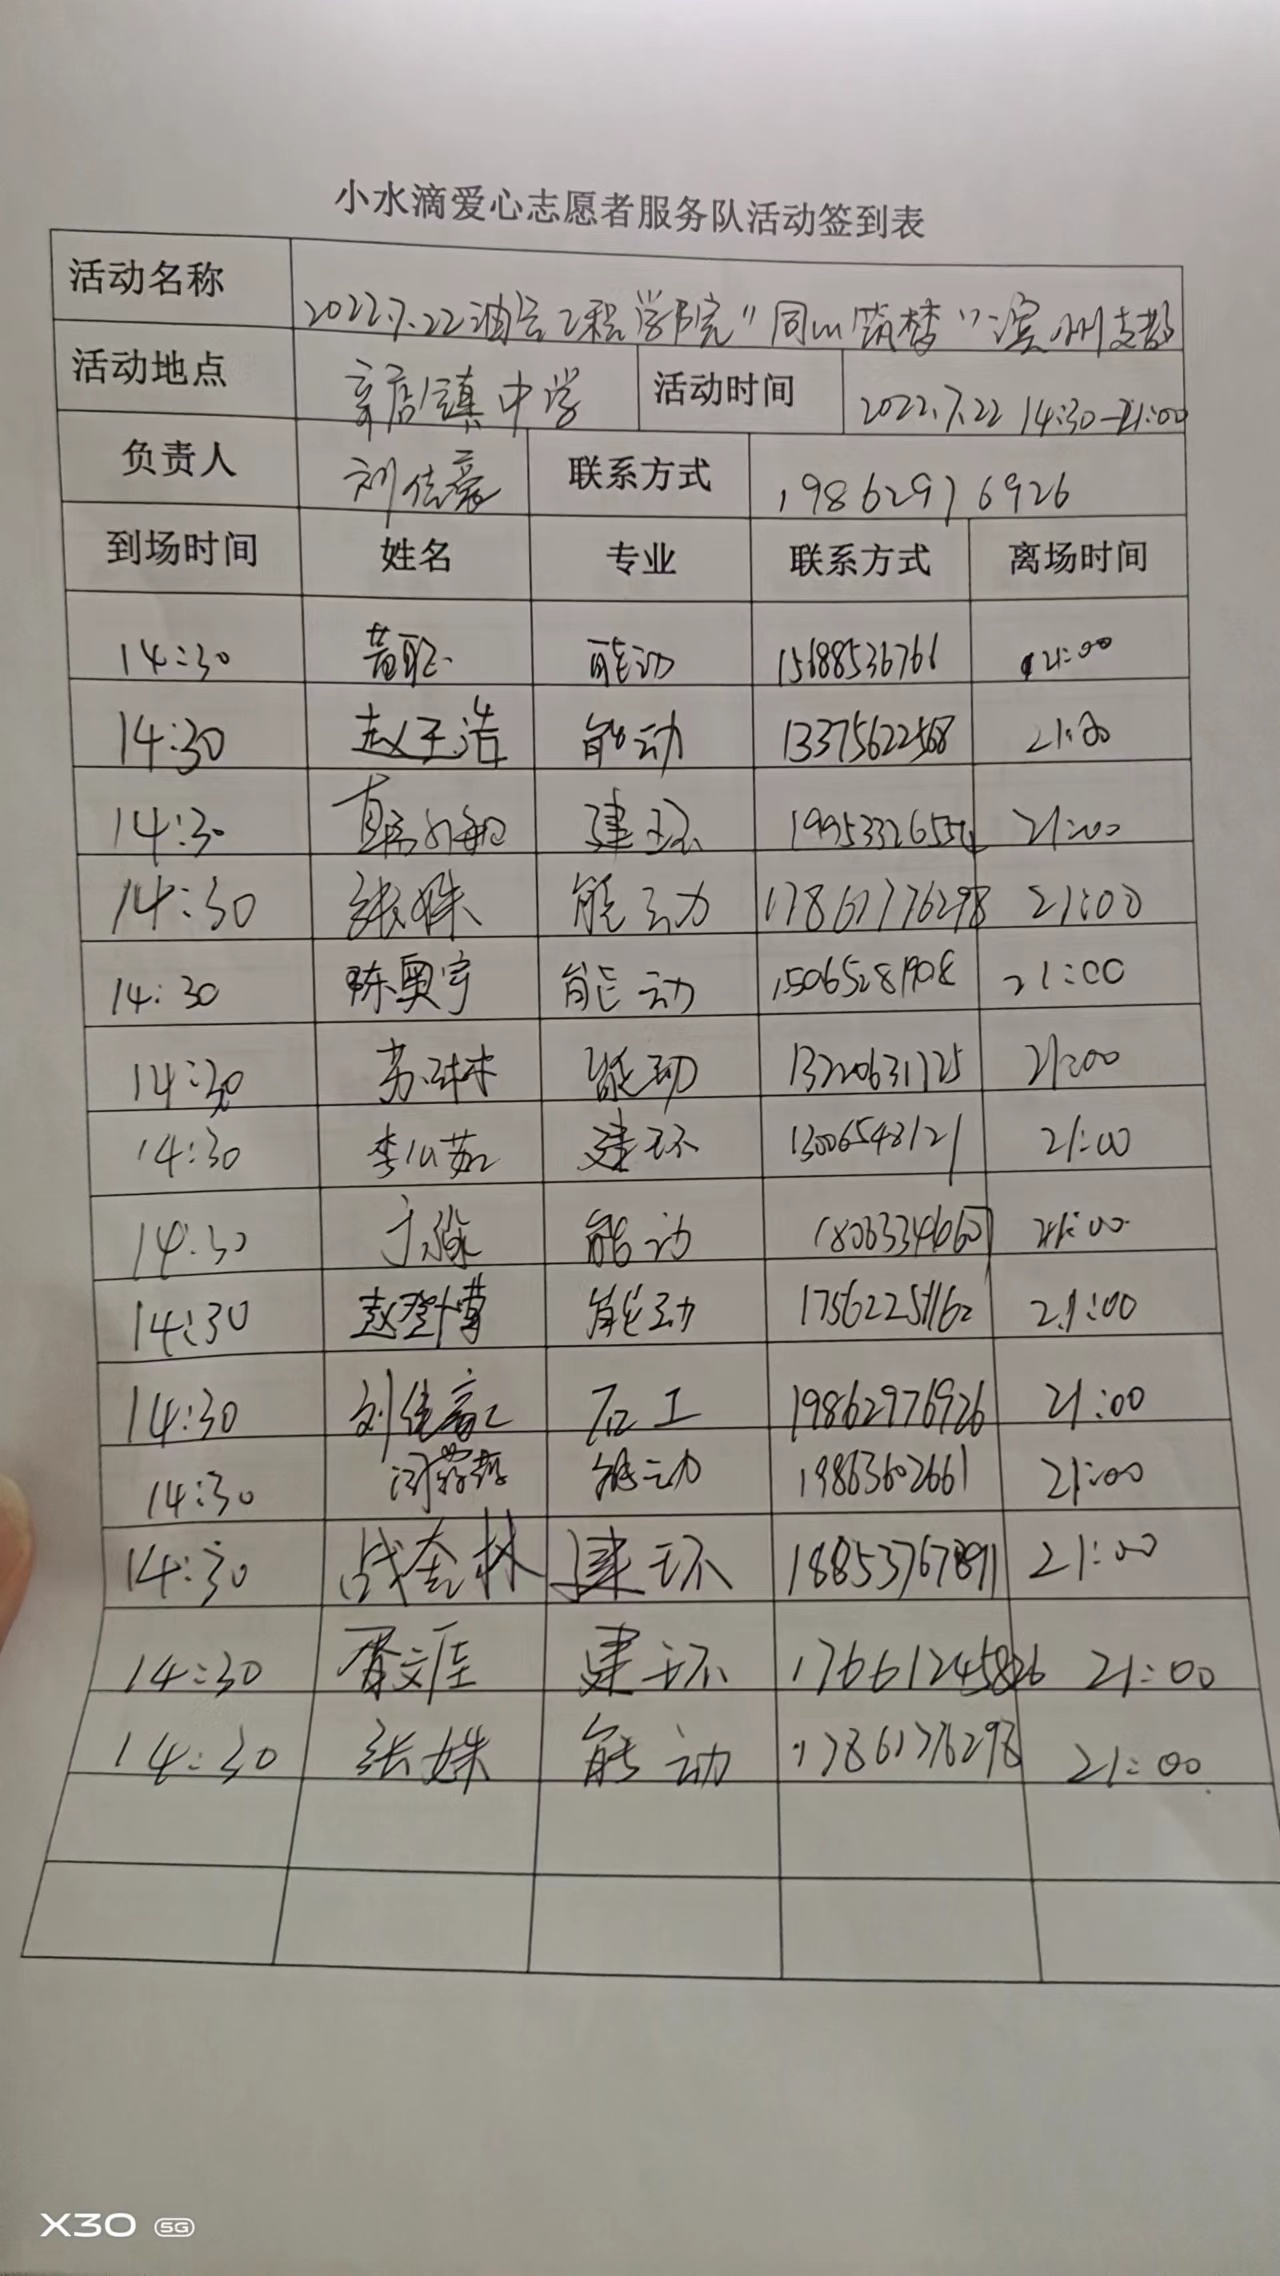 小水滴爱心志愿者服务队活动签到表
活动名称 2022.7.22油气工程学院"同心筑梦"滨州支教
活动地点 辛店镇中学 活动时间 2022.7.22 14:30-21:00
负责人 刘佳豪 联系方式 19862976926
到场时间 姓名 专业 联系方式 离场时间
14:30 黄聪 能动 15688536766 21:00
14:30 赵子浩 能动 13375622568 21:00
14:30 建环 21:00
14:30 张姝 能动 17861776298 21:00
14:30 陈奥宇 能动 15065281908 21:00
14:30 苏琳 能动 13220631725 21:00
14:30 李公茹 建环 13006548121 21:00
14:30 能动 21:00
14:30 赵登博 能动 17562251162 21:00
14:30 刘佳豪 石工 19862976926 21:00
14:30 能动 19863602661 21:00
14:30 战奎林 建环 18853767891 21:00
14:30 胥文涯 建环 17661245826 21:00
14:30 张姝 能动 17861776298 21:00
X30 5G